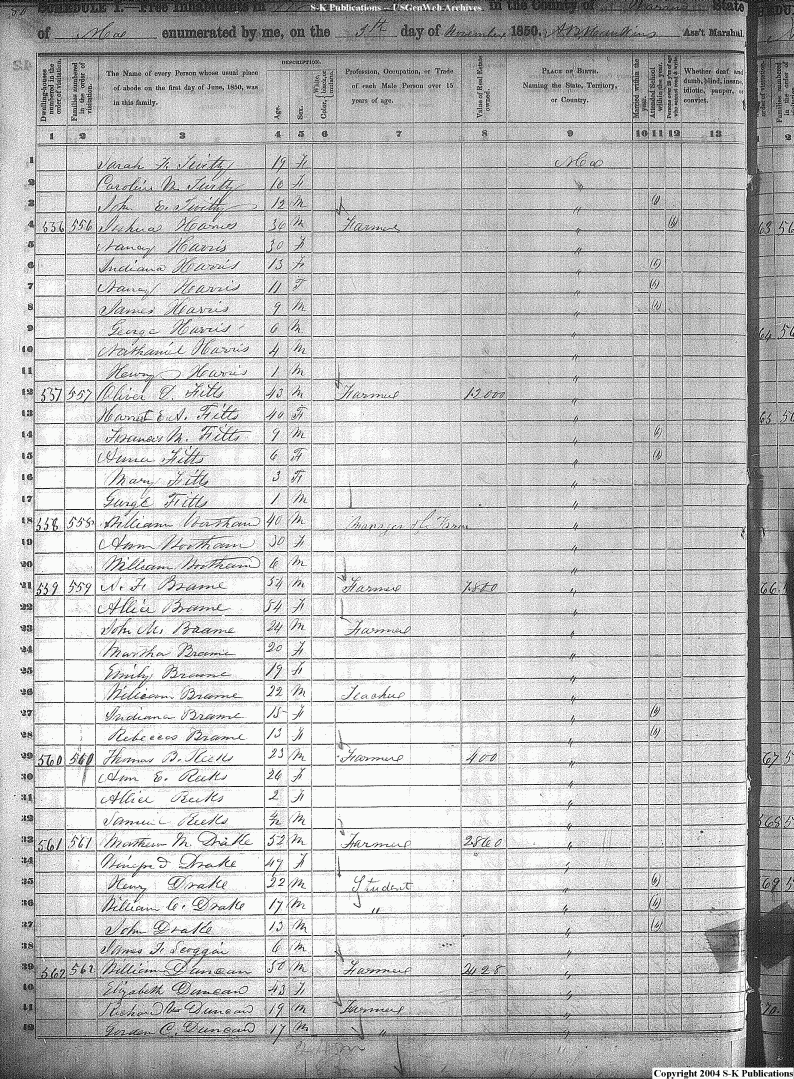 S-K Publications – USGenWeb Archives
SCHEDULE I.—Free Inhabitants in in the County of State
of enumerated by me, on the 5th day of November 1850. Ass't Marshal.
Dwelling-houses numbered in the order of visitation.
Families numbered in the order of visitation.
The Name of every Person whose usual place of abode on the first day of June, 1850, was in this family.
DESCRIPTION.
Age.
Sex.
Color, White, black, or mulatto.
Profession, Occupation, or Trade of each Male Person over 15 years of age.
Value of Real Estate owned.
PLACE OF BIRTH. Naming the State, Territory, or Country.
Married within the year.
Attended School within the year.
Persons over 20 y'rs of age who cannot read & write.
Whether deaf and dumb, blind, insane, idiotic, pauper, or convict.
1 2 3 4 5 6 7 8 9 10 11 12 13
1 Sarah F. Twitty 19 F
2 Caroline M. Twitty 16 F "
3 John E. Twitty 12 M " (1)
4 556 556 Joshua Harris 36 M Farmer " (1)
5 Nancy Harris 30 F "
6 Indiana Harris 13 F " (1)
7 Nancy Harris 11 F " (1)
8 James Harris 9 M " (1)
9 George Harris 6 M "
10 Nathaniel Harris 4 M "
11 Henry Harris 1 M "
12 557 557 Oliver D. Fitts 43 M Farmer 12000 "
13 Harriet E. A. Fitts 40 F "
14 Francis M. Fitts 9 M " (1)
15 Anna Fitts 6 F " (1)
16 Mary Fitts 3 F "
17 George Fitts 1 M "
18 558 558 William Wortham 40 M Manager of Farm "
19 Ann Wortham 30 F "
20 William Wortham 6 M "
21 559 559 N. F. Brame 54 M Farmer 1800 "
22 Allice Brame 54 F "
23 John M. Brame 24 M Farmer "
24 Martha Brame 20 F "
25 Emily Brame 19 F "
26 William Brame 22 M Teacher "
27 Indiana Brame 15 F " (1)
28 Rebecca Brame 13 F " (1)
29 560 560 Thomas B. Ricks 23 M Farmer 400 "
30 Ann E. Ricks 26 F "
31 Allice Ricks 2 F "
32 Samuel Ricks M "
33 561 561 Matthew M. Drake 52 M Farmer 2860 "
34 Winifred Drake 47 F "
35 Henry Drake 22 M Student " (1)
36 William C. Drake 17 M " " (1)
37 John Drake 13 M " (1)
38 James F. Scoggin 6 M "
39 562 562 William Duncan 50 M Farmer 2428 "
40 Elizabeth Duncan 43 F "
41 Richard Duncan 19 M Farmer "
42 Gorden C. Duncan 17 M " "
Copyright 2004 S-K Publications